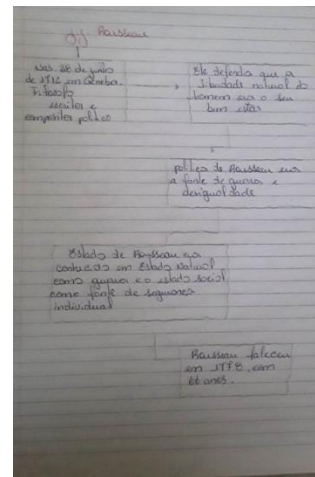 Rousseau
Nas. 28 de junho
de 1712 em Genebra.
Filosofo
escritor e
compositor politico
Ele defendia que a
liberdade natural do
homem era o seu
bem estar
politica de Rousseau era
a fonte de guerras e
desigualdade
Estado de Rousseau era
conhecido em Estado Natural
como guerra e o estado social
como fonte de
individual
Rousseau faleceu
em 1778 com
66 anos.